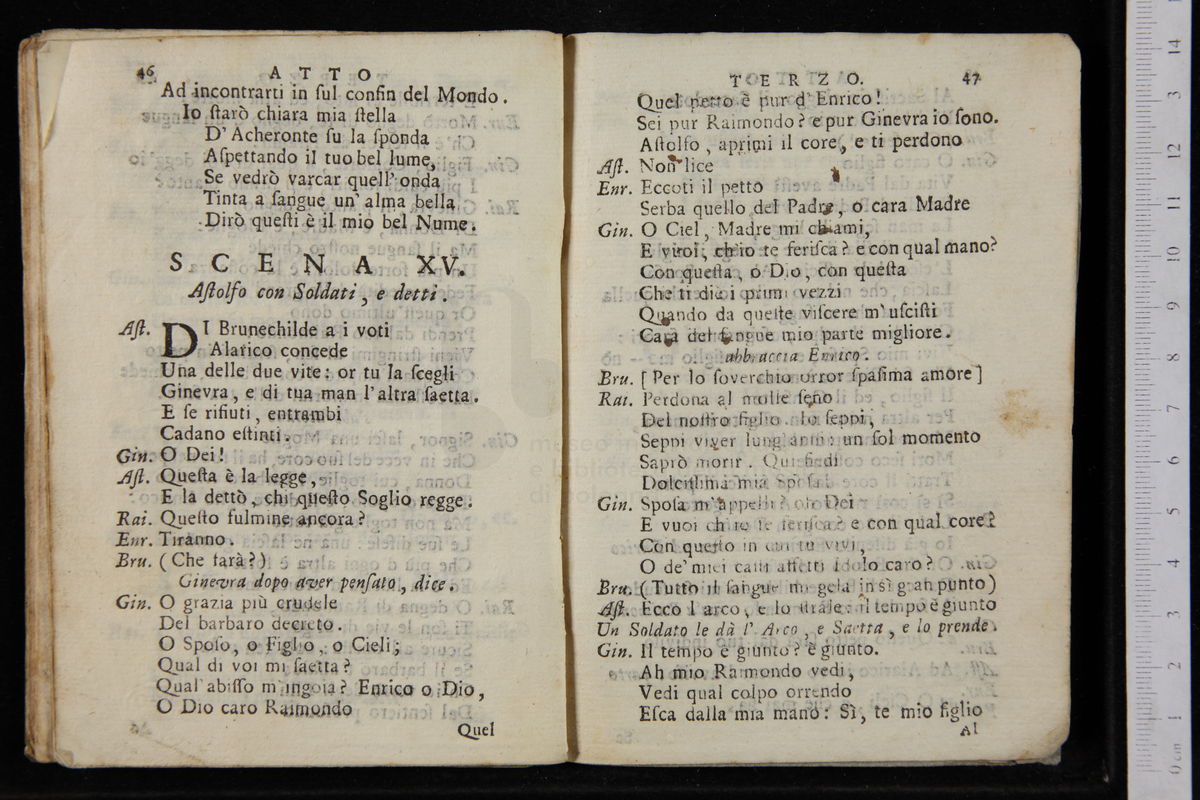 46 ATTO
Ad incontrarti in ſul confin del Mondo.
Io ſtarò chiara mia ſtella
D' Acheronte ſu la ſponda
Aſpettando il tuo bel lume,
Se vedrò varcar quell' onda
Tinta a ſangue un' alma bella
Dirò queſti è il mio bel Nume.
SCENA XV.
Aſtolfo con Soldati, e detti.
Aſt. DI Brunechilde a i voti
Alarico concede
Una delle due vite: or tu la ſcegli
Ginevra, e di tua man l'altra ſaetta.
E ſe rifiuti, entrambi
Cadano eſtinti.
Gin. O Dei!
Aſt. Queſta è la legge,
E la dettò, chi queſto Soglio regge.
Rai. Queſto fulmine ancora?
Enr. Tiranno.
Bru. (Che farà?)
Ginevra dopo aver penſato, dice.
Gin. O grazia più crudele
Del barbaro decreto.
O Spoſo, o Figlio, o Cieli;
Qual di voi mi ſaetta?
Qual'abiſſo m'ingoia? Enrico o Dio,
O Dio caro Raimondo
Quel
TERZO. 47
Quel petto è pur d' Enrico!
Sei pur Raimondo? e pur Ginevra io ſono.
Aſtolfo, aprimi il core, e ti perdono
Aſt. Non lice
Enr. Eccoti il petto
Serba quello del Padre, o cara Madre
Gin. O Ciel, Madre mi chiami,
E vuoi, ch'io te feriſca? e con qual mano?
Con queſta, o Dio, con queſta
Che ti die i primi vezzi
Quando da queſte viſcere m' uſciſti
Cara del ſangue mio parte migliore.
abbraccia Enrico.
Bru. [Per lo ſoverchio orror ſpaſima amore]
Rai. Perdona al molle ſeno
Del noſtro figlio. Io ſeppi,
Seppi viver lung'anni: un ſol momento
Saprò morir. Qui fiedi
Dolciſſima mia Spoſa.
Gin. Spoſa m'appelli? oh Dei
E vuoi ch'io te feriſca? e con qual core?
Con queſto in cui tu vivi,
O de' miei caſti affetti Idolo caro?
Bru. (Tutto il ſangue mi gela in sì gran punto)
Aſt. Ecco l'arco, e lo ſtrale: il tempo è giunto
Un Soldato le dà l' Arco, e Saetta, e lo prende.
Gin. Il tempo è giunto? è giunto.
Ah mio Raimondo vedi,
Vedi qual colpo orrendo
Eſca dalla mia mano: Sì, te mio figlio
Al